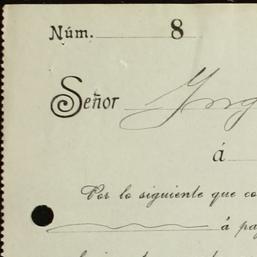 Núm. 8
Señor Ing
á
Por lo siguiente que co
á pa